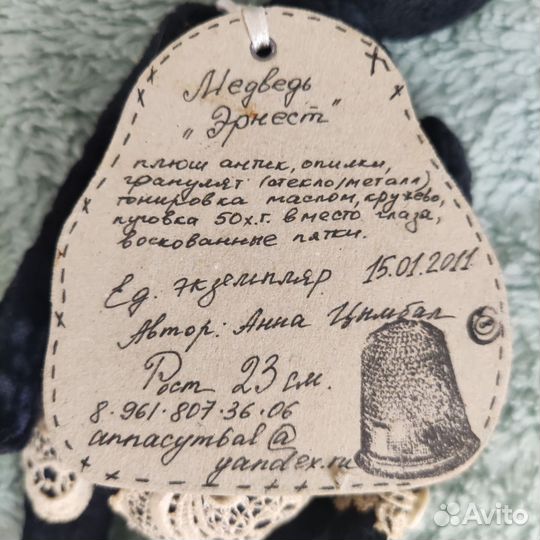 Медведь
„Эрнест"
плюш антик, опилки,
гранулят (стекло/металл)
тонировка маслом, кружево,
пуговка 50х.г. вместо глаза,
воскованные пятки.
Ед. экземпляр 15.01.2011
Автор: Анна Цымбал
Рост 23 см.
8·961·807·36·06
annacymbal@
yandex.ru
Avito